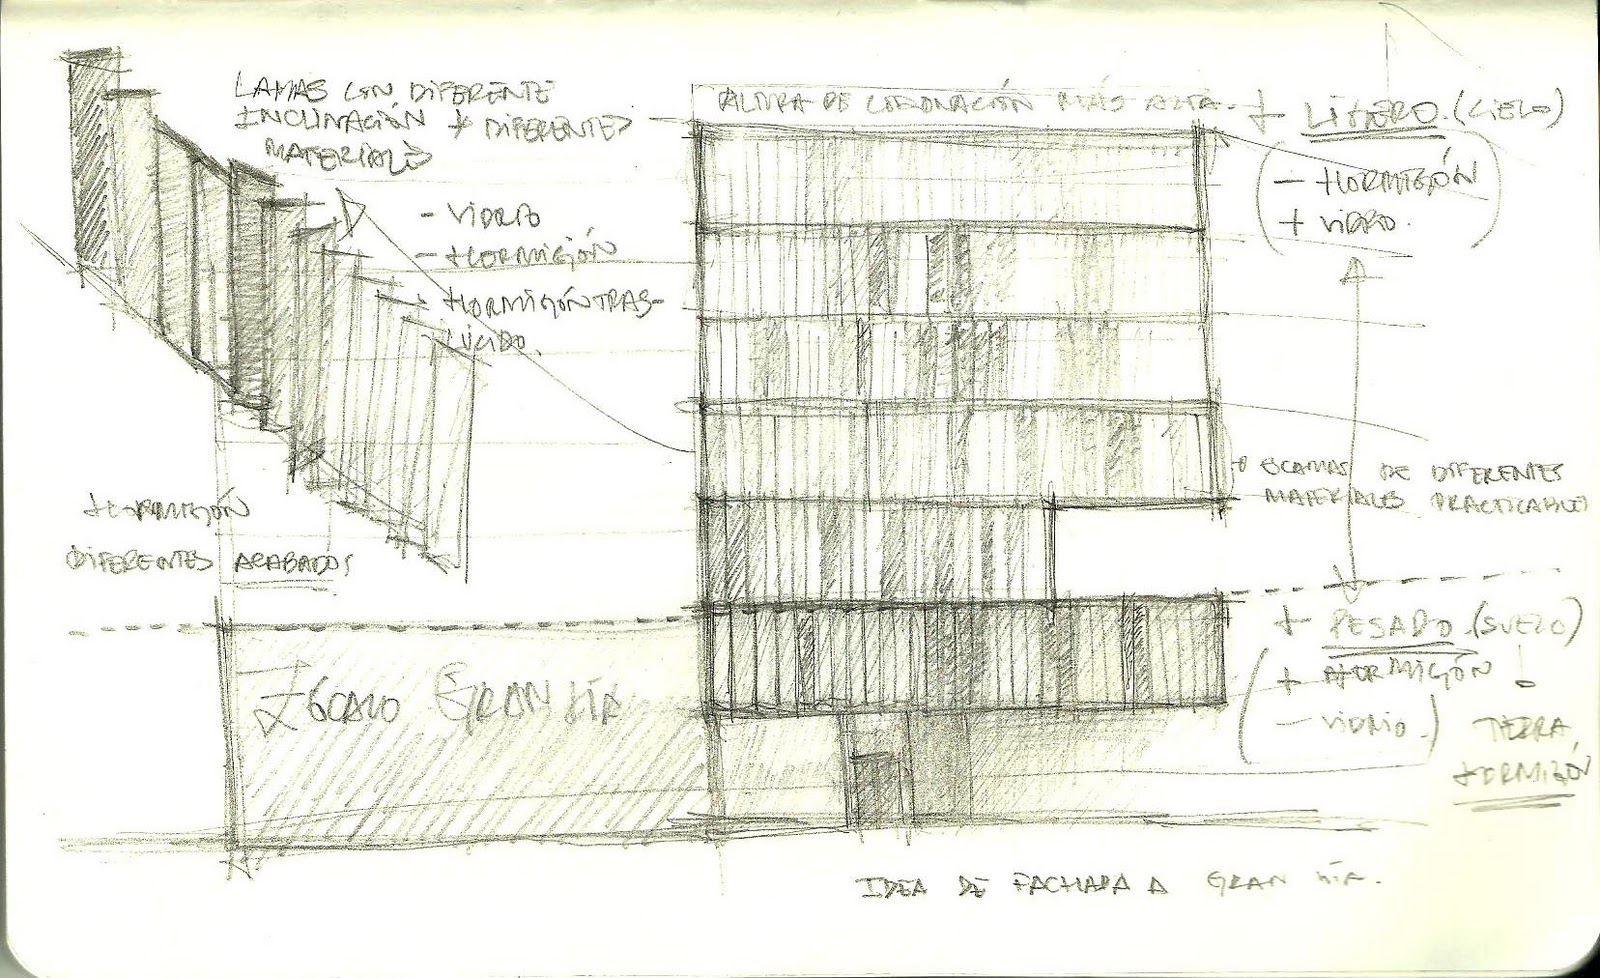 LAMAS CON DIFERENTE
INCLINACIÓN + DIFERENTES
MATERIALES
- VIDRIO
- HORMIGÓN
- HORMIGÓN TRAS-
LÚCIDO.
ALTURA DE CORONACIÓN MÁS ALTA.
+ LIGERO. (CIELO)
- HORMIGÓN
+ VIDRIO.
ESCAMAS DE DIFERENTES
MATERIALES PRACTICABLES
HORMIGÓN
DIFERENTES ACABADOS
ZÓCALO GRAN VÍA
+ PESADO. (SUELO)
+ HORMIGÓN
- VIDRIO.
TIERRA,
HORMIGÓN
IDEA DE FACHADA A GRAN VÍA.